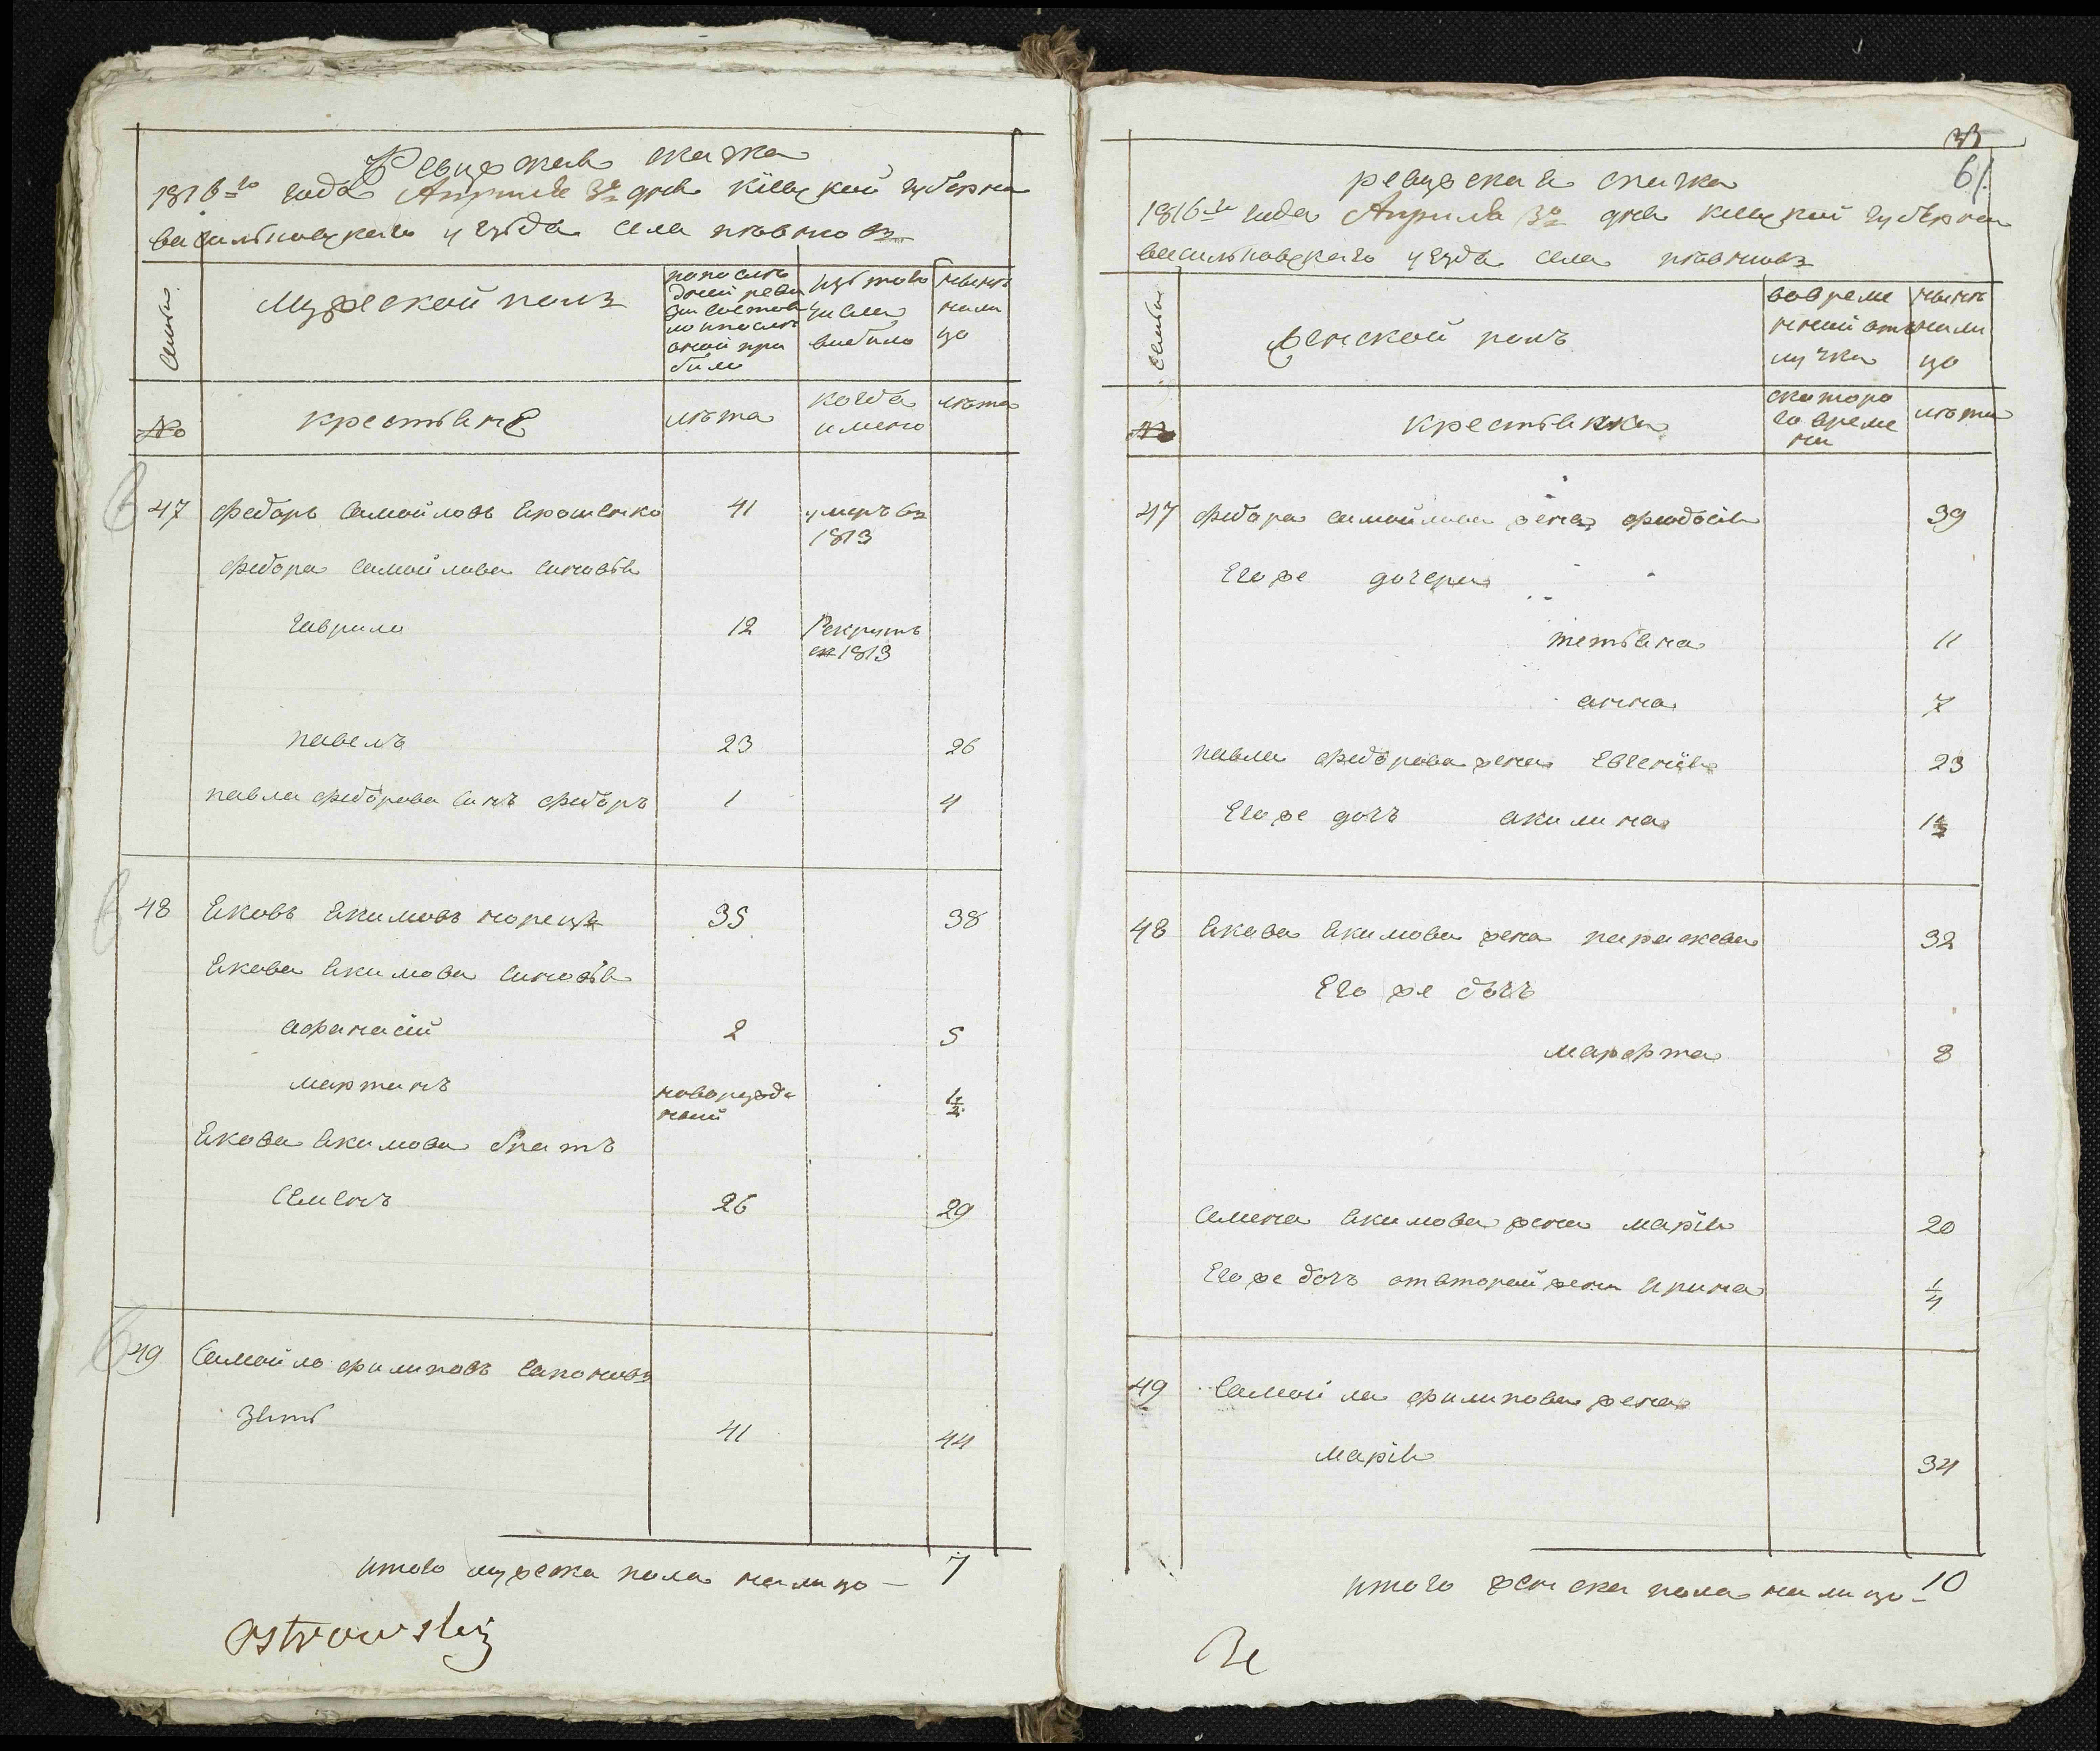 Ревизская сказка
1816го года Апреля 30 дня Кiевской губернiи
васильковскаго уезда села
семьи
Мужеской полъ
по последней ревизiи состояло и после оной прибыло
изъ того числа выбыло
ныне налицо
№
крестьяне
лета
когда именно
лета
47 Федоръ Самойловъ Ярошенко 41 умеръ въ 1813
Федора Самойлова сыновья
гаврило 12 Рекрутъ въ 1813
павелъ 23 26
павла Федорова сынъ Федоръ 1 4
48 Яковъ Якимовъ корецъ 35 38
Якова Якимова сыновья
афанасiй 2 5
мартинъ новорожденый 1/2
Якова Якимова братъ
Семенъ 26 29
49 Самойло филиповъ Сапоновъ
зять 41 44
итого мужеска пола налицо – 7
Ostrowski
61
ревизская сказка
1816го года Апреля 30 дня Кiевской губернiи
васильковскаго уезда села
семьи
Женской полъ
во временной отлучке
ныне налицо
№
крестьянки
с котораго времени
лета
47 Федора самойлова жена феодосiя 39
Его же дочери
тетьяна 11
анна 7
павла Федорова жена Евгенiя 23
Его же дочъ акилина 1 1/2
48 Якова Якимова жена параскева 32
Его же дочъ
марфта 8
Семена Якимова жена марiя 20
Его же дочъ отвторой жены ирина 1/4
49 Самойла филипова жена
марiя 34
итого женска пола налицо – 10